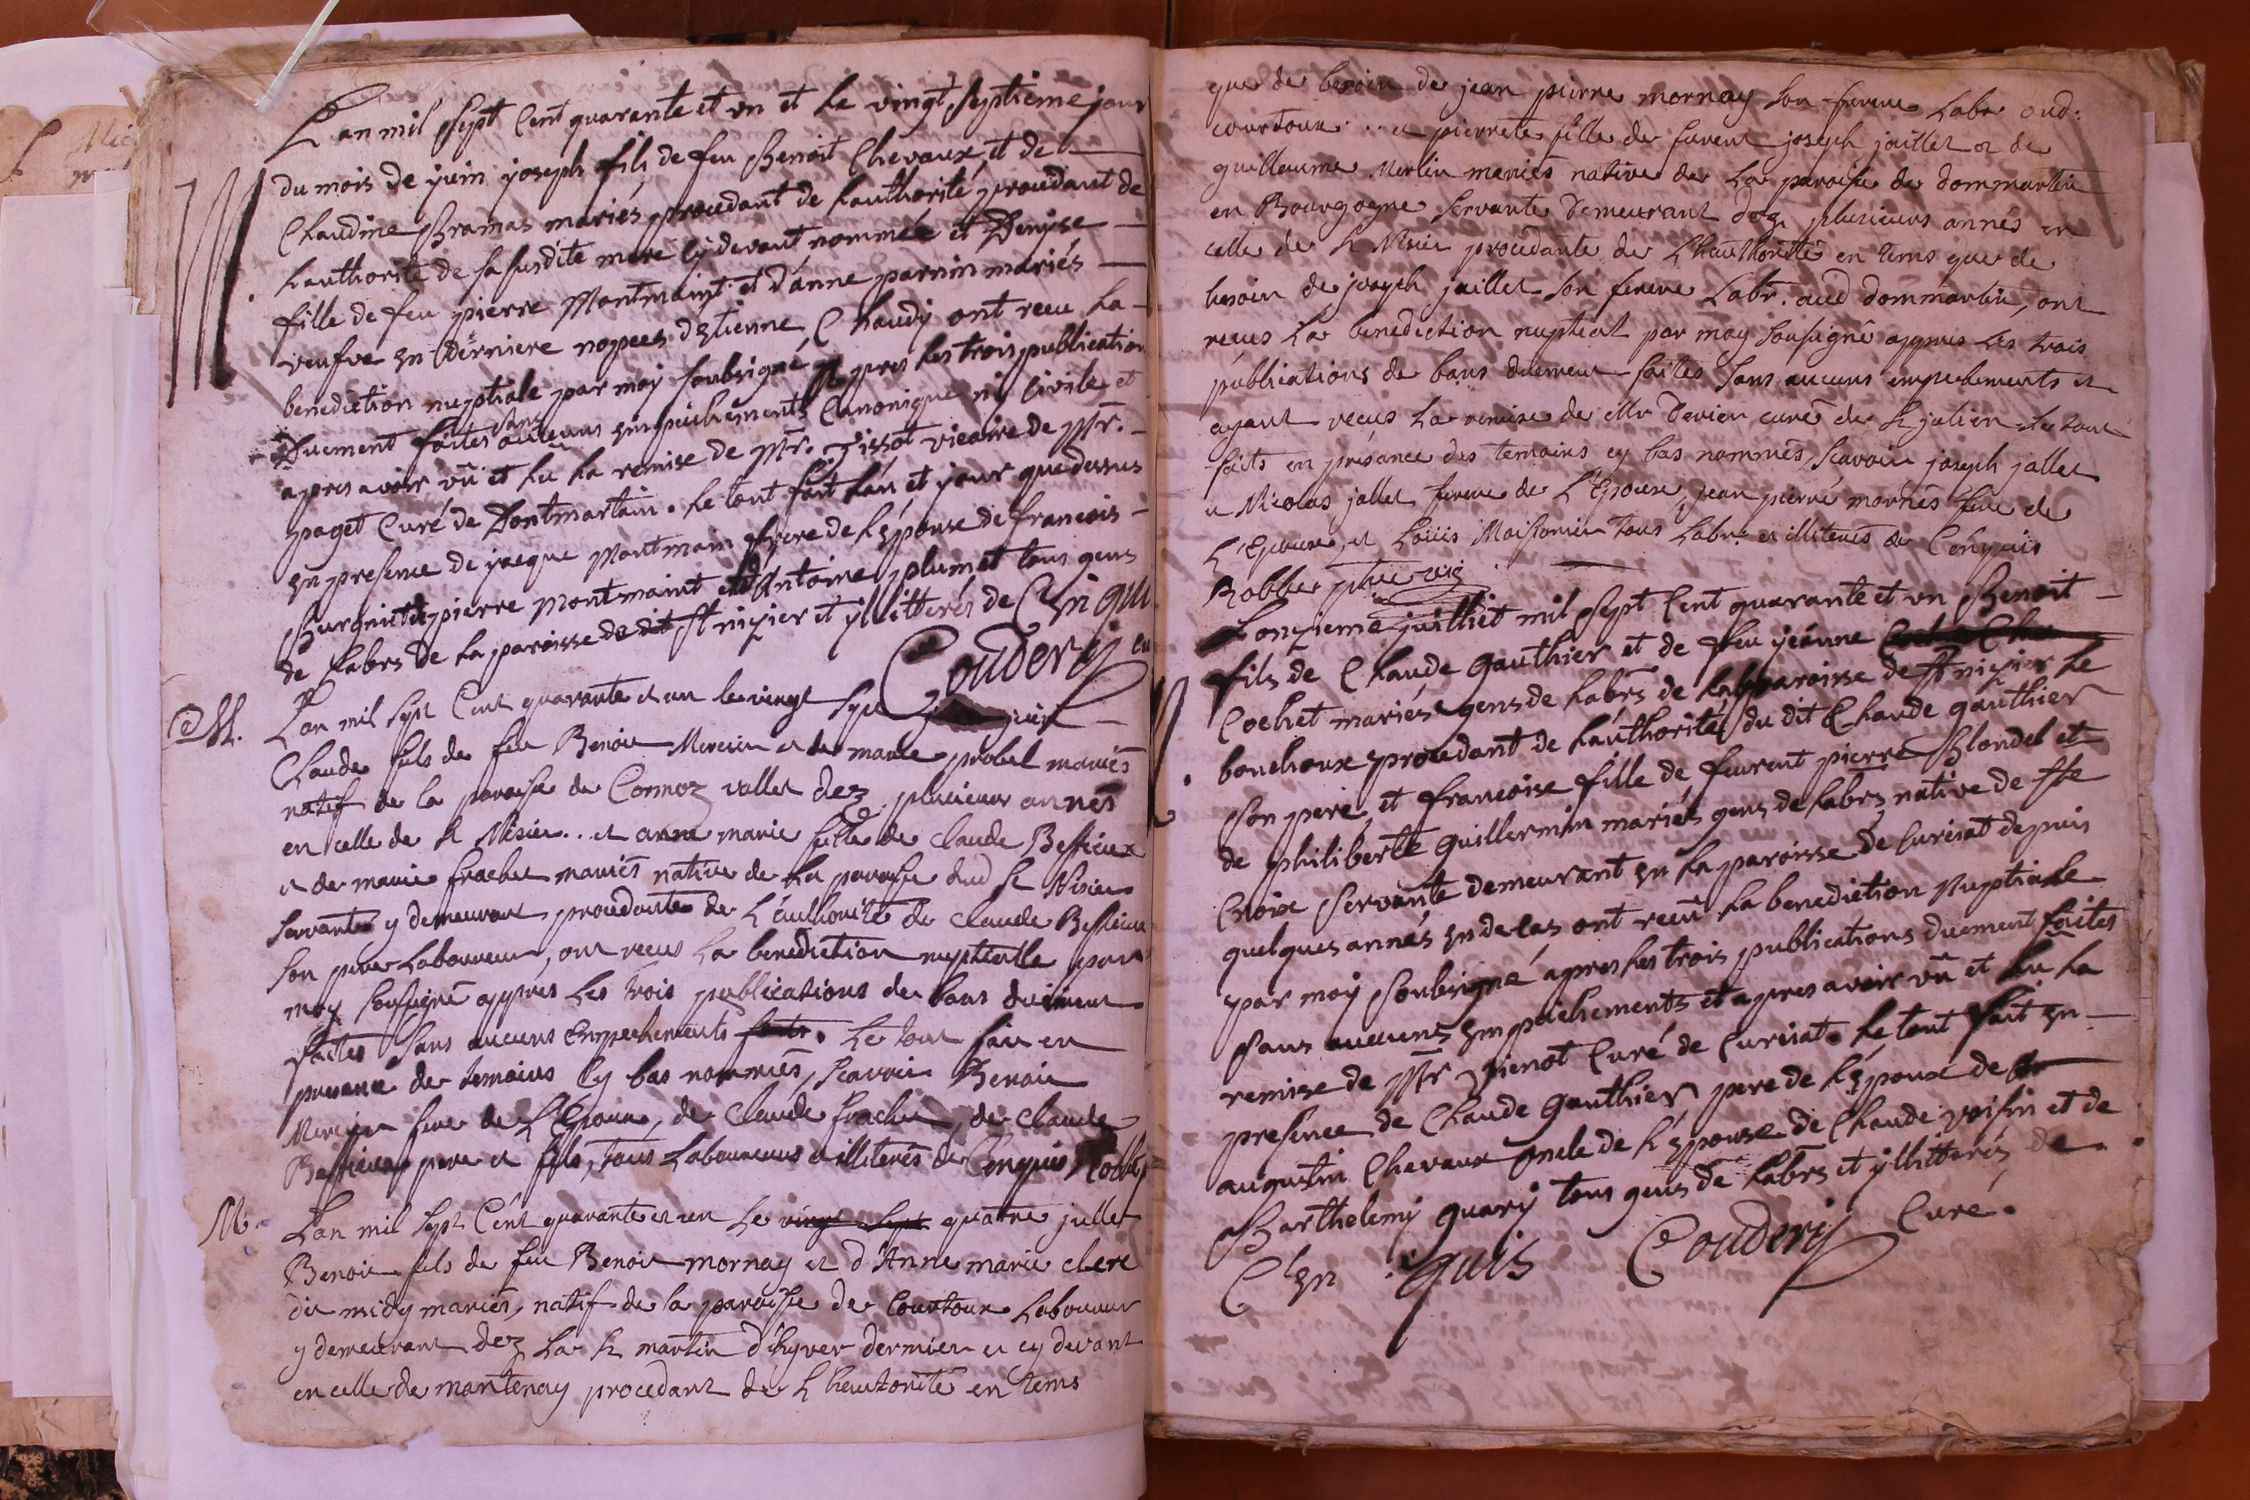 M
Lan mil sept Cent quarante et un et le vingt septieme jour
du mois de juin joseph fils de feu Benoit Chevaux et de
Claudine Bramas mariés procedant de Lauthorité procedant de
Lauthorite de sa susdite mere cy devant nommée et Denise
fille de feu pierre Montmaint et d'anne parnin mariés
veufve en derniere nopces detienne Chaudy ont receu la
benediction nuptiale par moy soubsigné apres les trois publication
Duement faites sans aucuns empeichements Canonique ny Civile et
apres avoir vû et lu la remise de Mr. Tissot vicaire de Mr.
paget Curé de Dontmartain. le tout fait lan et jour que dessus
en presence de jacque Montmain frere de lepouse de francois
Burgniet de pierre Montmaint et d'Antoine plumet tous gens
de labrs de la paroisse de dit St nizier et illitterés de Enquis
Coudery cu
M. Lan mil sept Cent quarante et un le vingt sept juin
Claude fils de feu Benoit Mercier et de marie probel mariés
natif de la paroisse de Cormoz vallet dez plusieurs annés
en celle de St Nisier .. et anne marie fille de Claude Beffieux
et de marie frachet mariés native de la paroisse dud St Nisier
servante y demeurant procedante de L'authorité de Claude Beffieux
son pere Laboureur, ont receus la benediction nuptialle par
moy soussigné appres les trois publications de bans duement
faites sans aucuns empechements faits. Le tout fait en
presence de temoins cy bas nommés, scavoir Benoit
Mercier frere de l'Epoux, de Claude frachet, de Claude
Beffieux pere et fils, tous Laboureurs et illiterés de Lenquis Robbe
M. Lan mil sept Cent quarante et un le vingt sept quatre jullet
Benoit fils de feu Benoit mornay et d'Anne marie clere
dit midy mariés, natif de la paroisse de Courtoux Laboureur
y demeurant dez la St martin d'hyver dernier et cy devant
en celle de mantenay procedant de L'hautorité en tems
que de besoin de jean pierre mornay son frere Labr aud.
courtoux .. et pierrete fille de furent joseph jaillet et de
guillaume Merlin mariés native de la paroisse de dommartin
en Bourgogne servante demeurant dez plusieurs annés en
celle de St Nisier procedante de L'hauthorité en tems que de
besoin de joseph jaillet son frere Labr. aud dommartin, ont
recus la benediction nuptial par moy soussigné appres les trois
publications de bans duement faites sans aucuns empechements et
ayant recus la remise de Mr Devieu curé de St julien Le tout
fait en presance des temoins cy bas nommés, scavoir joseph jallet
et Nicolas jallet freres de L'Epouse, jean pierre mornés frere de
L'Epoux et Loüis Maisonier tous Labrs et illiterés de Cenquis
Robbe ptre vic
M. Lonzieme juilliet mil sept Cent quarante et un Benoit
fils de Claude Gauthier et de feu jeanne
Cochet mariés gens de labrs de la paroisse de St nizier le
bouchoux procedant de lauthorité du dit Claude Gauthier
son pere, et francoise fille de feurent pierre Blondel et
de philiberte Guillermin mariés gens de labrs native de Ste
Croix servante demeurant en la paroisse de Curciat depuis
quelques annés en de cas ont receu la benediction Nuptiale
par moy soubsigné apres les trois publications duement faites
sans aucuns empeichements et apres avoir vû et lu la
remise de Mr vienot Curé de Curciat. le tout fait en
presence de Claude Gauthier pere de l'Epoux de
augustin Chevaux oncle de l'Epouse de Claude voisin et de
Barthelemy Guary tous gens de labrs et illitterés de
Enquis Coudery Curé.